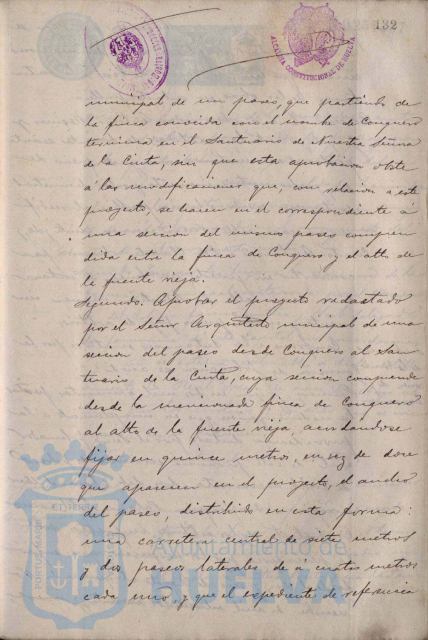 132
ALCALDIA CONSTITUCIONAL DE HUELVA
municipal de un paseo, que partiendo de
la finca conocida con el nombre de Conquero
termina en el Santuario de Nuestra Señora
de la Cinta, sin que esta aprobacion obste
á las modificaciones que, con relacion a este
proyecto, se hacen en el correspondiente á
una seccion del mismo paseo compren
dida entre la finca de Conquero y el alto de
la fuente vieja.
Segundo. Aprobar el proyecto redactado
por el Señor Arquitecto municipal de una
seccion del paseo desde Conquero al San
tuario de la Cinta, cuya seccion comprende
desde la mencionada finca de Conquero
al alto de la fuente vieja acordandose
fijar en quince metros, en vez de doce
que aparecen en el proyecto, el ancho
del paseo, distribuido en esta forma:
una carretera central de siete metros
y dos paseos laterales de á cuatro metros
cada uno, y que el expediente de referencia
Ayuntamiento de
HUELVA